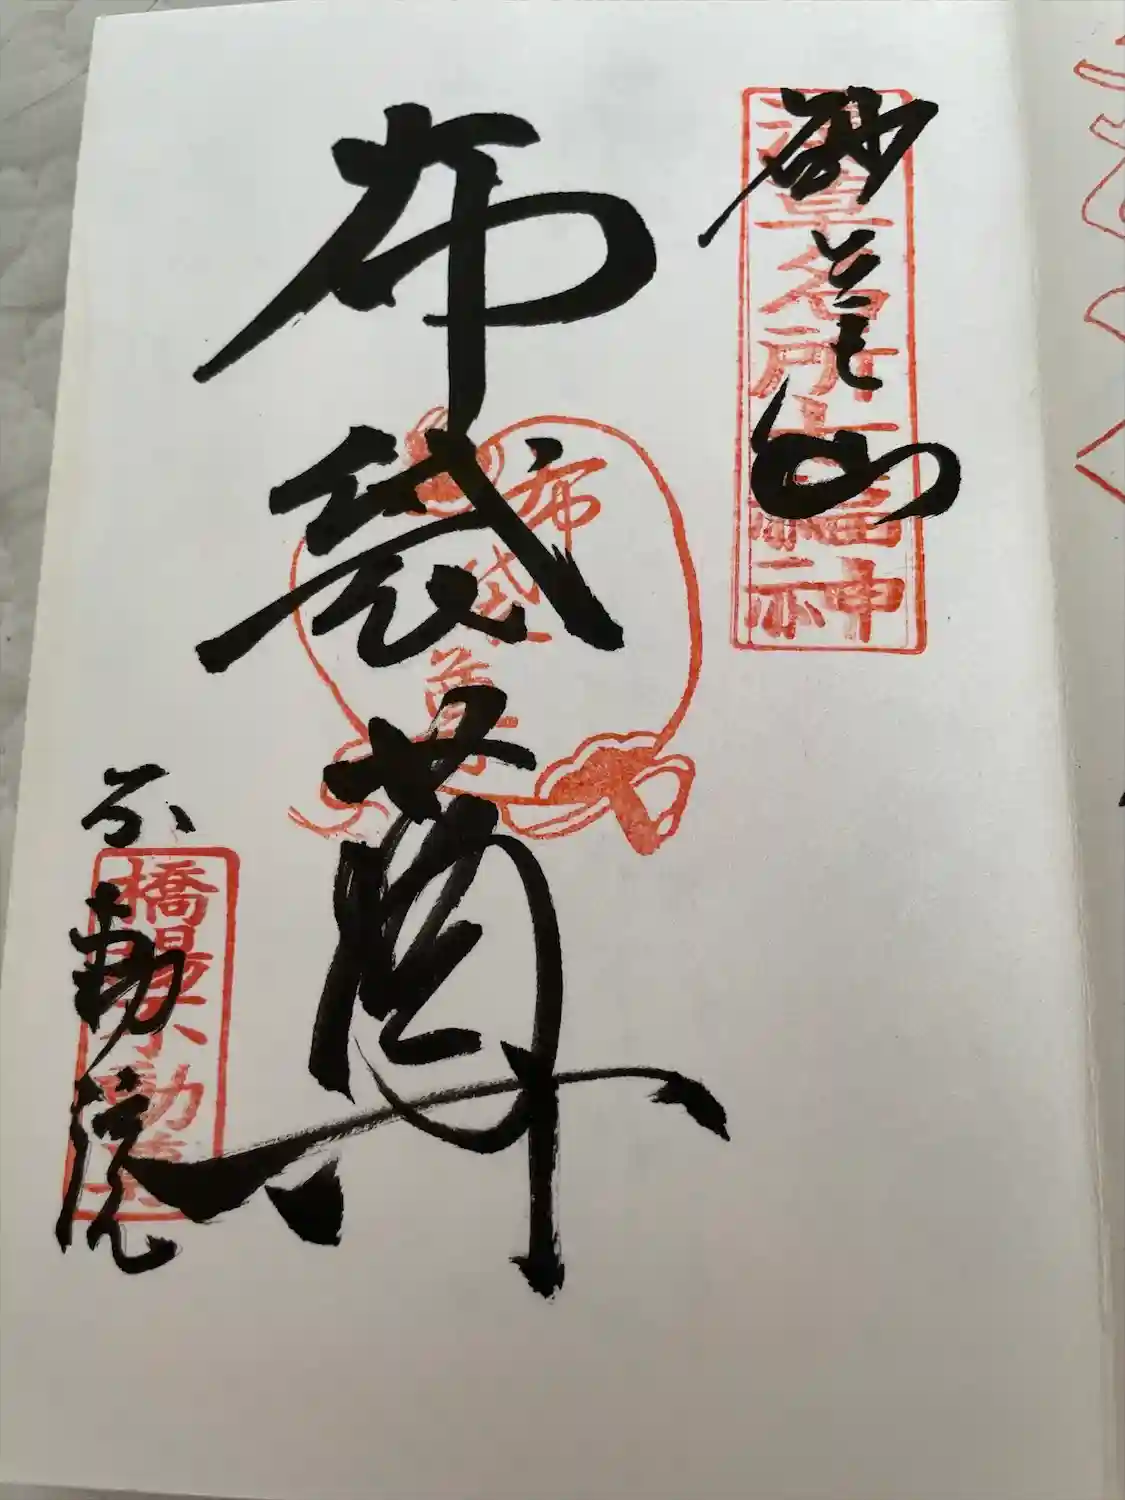 砂尾山
浅草名所七福神
布袋尊
布袋尊
不動院
橋場不動尊